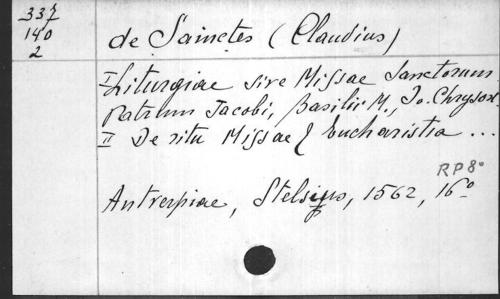 337
140
2
de Sainctes (Claudius)
I Liturgiae sive Missae Sanctorum
Patrum Jacobi, Basilii M., Jo. Chrysost
II De ritu Missae & Eucharistia ...
RP8°
Antverpiae, Stelsius, 1562, 16°